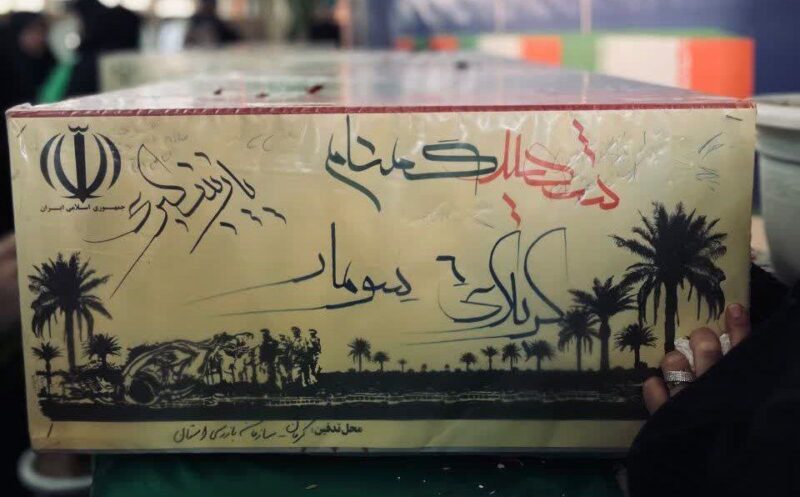 شهید گمنام
جمهوری اسلامی ایران
کربلای ۶ سومار
محل تدفین: کرمان - سازمان بازرسی استان